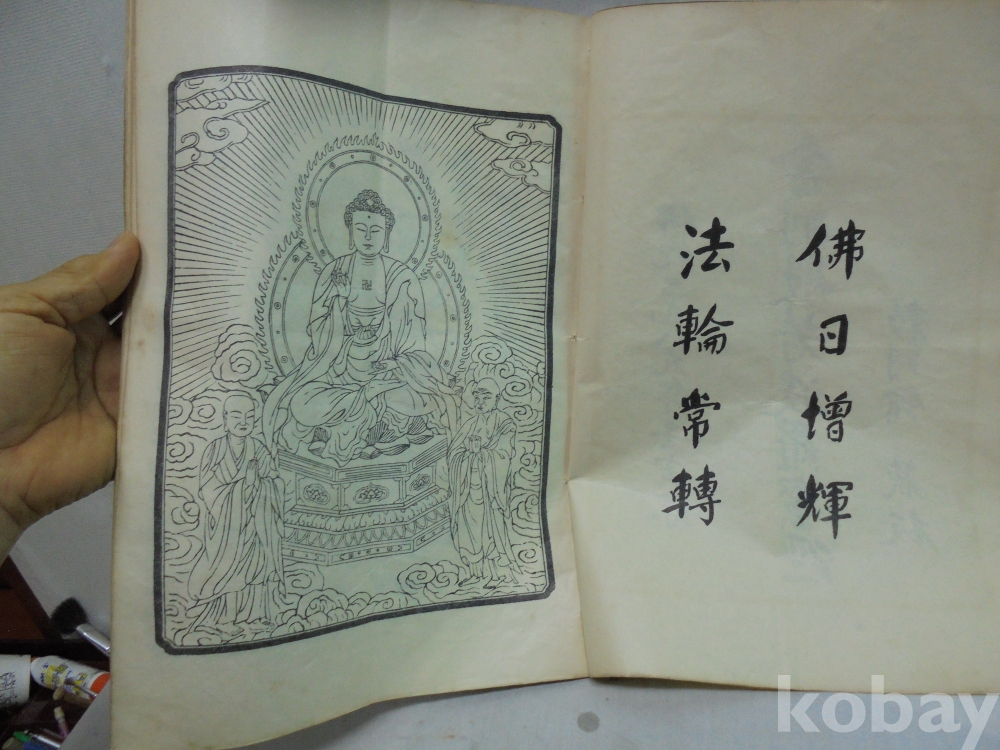 佛日增輝
法輪常轉
kobay